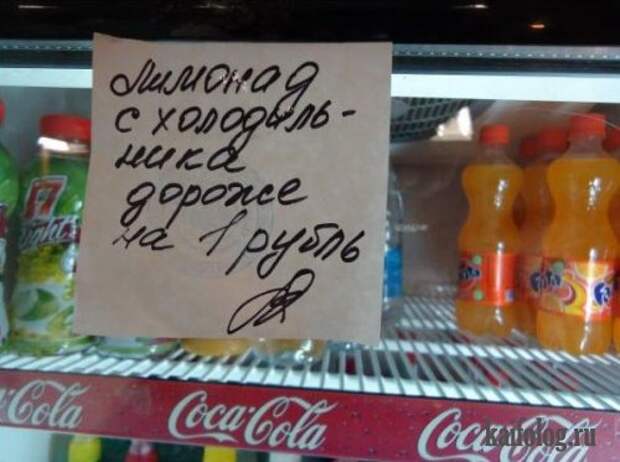 Лимонад
с холодиль-
ника
дороже
на 1 рубль
Fanta
Coca-Cola
Coca-Cola
Coca-Cola
kaifolog.ru